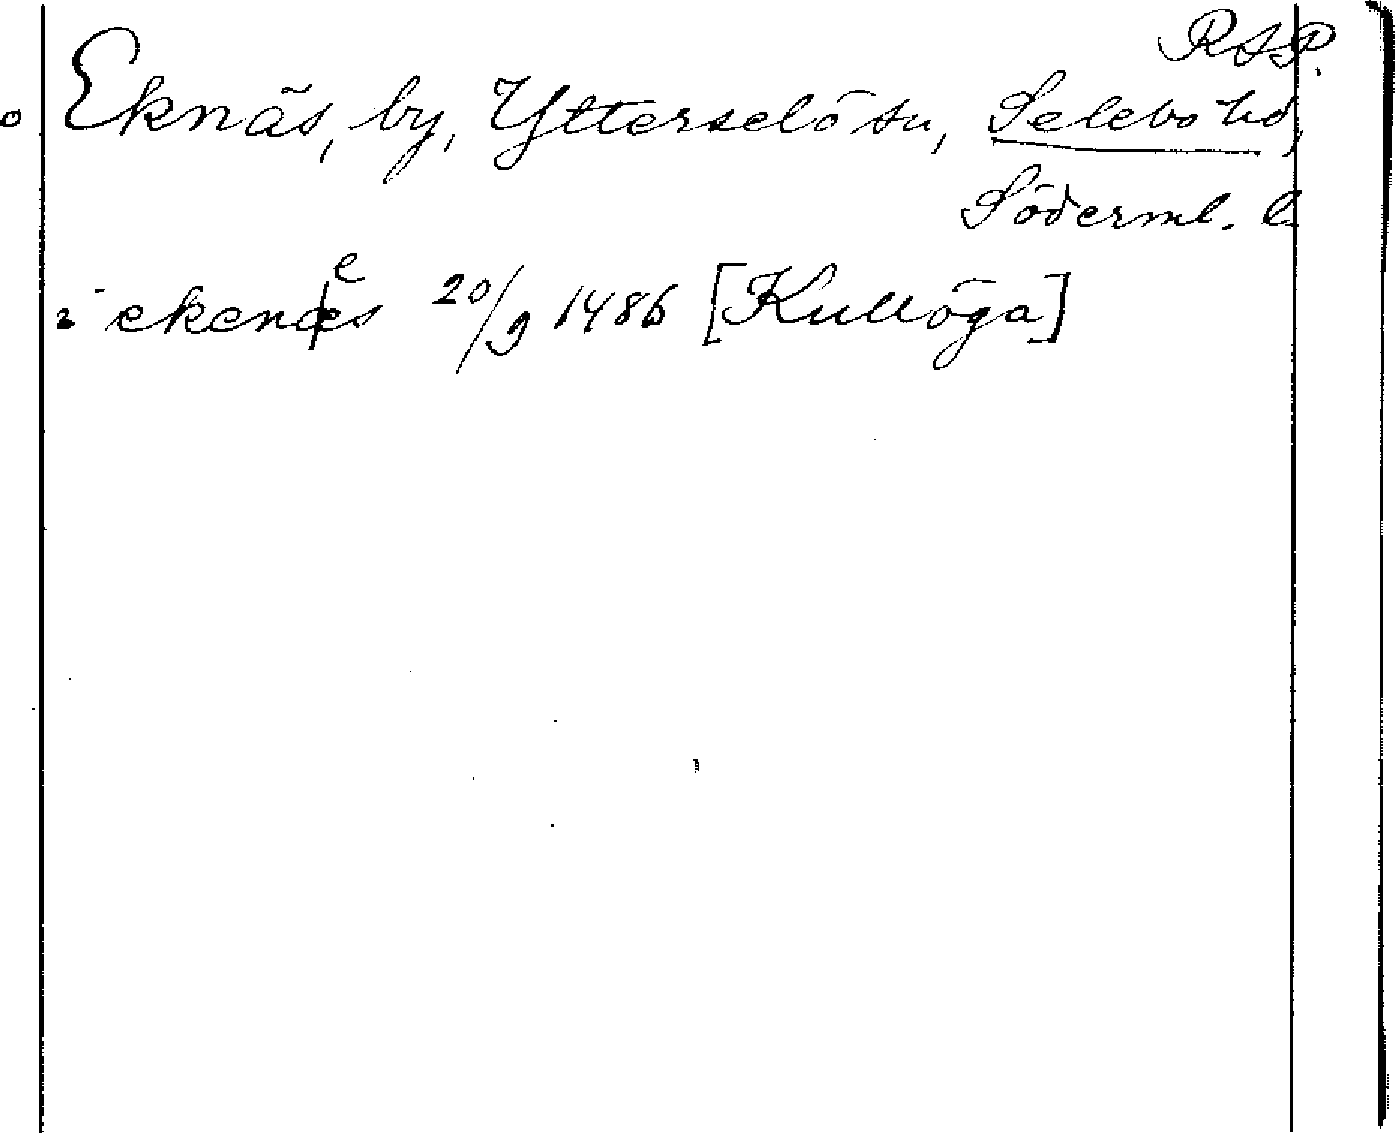 RAP.
Eknäs, by, Ytterselö sn, Selebo hd,
Söderml. l.
i ekenes 20/9 1486 [Kullöga]